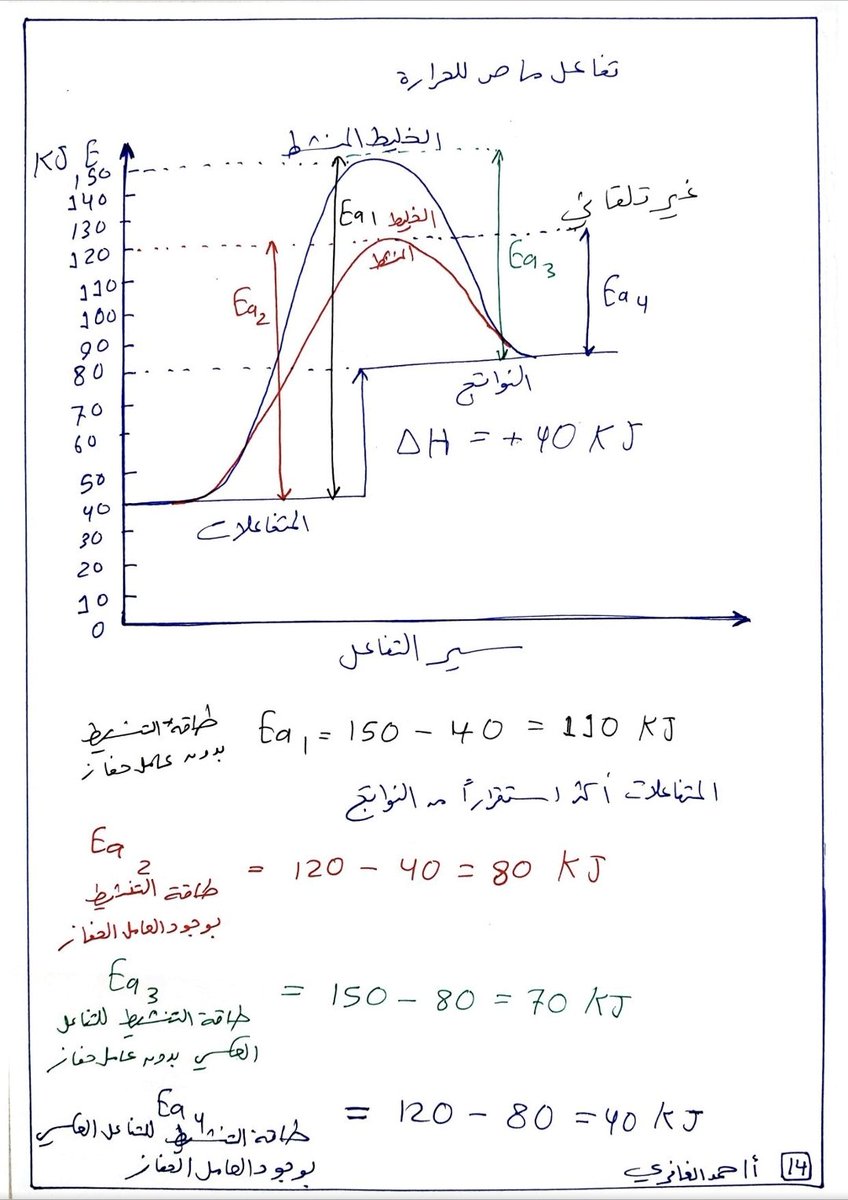 تفاعل ماص للحرارة
KJ E
150
140
130
120
110
100
90
80
70
60
50
40
30
20
10
0
الخليط المنشط
Ea1
الخليط
المنشط
Ea2
Ea3
غير تلقائي
Ea4
النواتج
ΔH = + 40 KJ
المتفاعلات
سير التفاعل
طاقة التنشيط
بدون عامل حفاز
Ea1 = 150 - 40 = 110 KJ
المتفاعلات أكثر استقراراً من النواتج
Ea2 = 120 - 40 = 80 KJ
طاقة التنشيط
بوجود العامل الحفاز
Ea3 = 150 - 80 = 70 KJ
طاقة التنشيط للتفاعل
العكسي بدون عامل حفاز
Ea4 = 120 - 80 = 40 KJ
طاقة التنشيط للتفاعل العكسي
بوجود العامل الحفاز
14